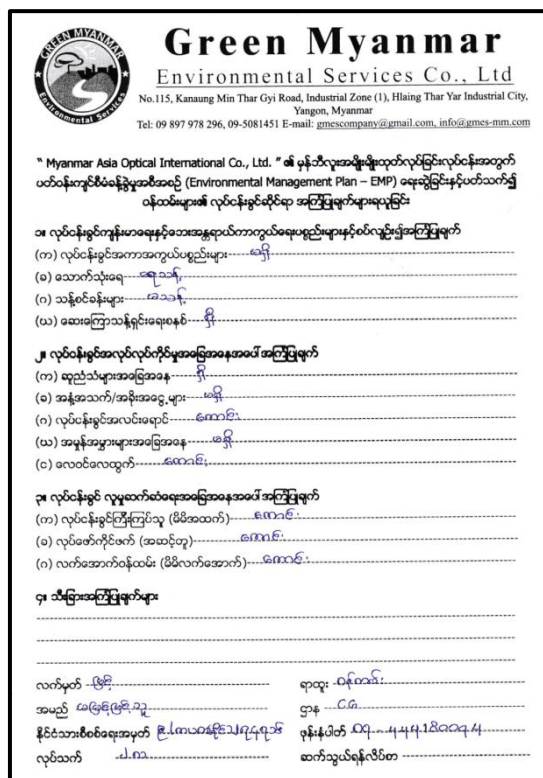 GREEN MYANMAR
Environmental Services
Green Myanmar
Environmental Services Co., Ltd
No.115, Kanaung Min Thar Gyi Road, Industrial Zone (1), Hlaing Thar Yar Industrial City,
Yangon, Myanmar
Tel: 09 897 978 296, 09-5081451 E-mail: gmescompany@gmail.com, info@gmes-mm.com
" Myanmar Asia Optical International Co., Ltd. " ၏ မှန်ဘီလူးအမျိုးမျိုးထုတ်လုပ်ခြင်းလုပ်ငန်းအတွက်
ပတ်ဝန်းကျင်စီမံခန့်ခွဲမှုအစီအစဉ် (Environmental Management Plan – EMP) ရေးဆွဲခြင်းနှင့်ပတ်သက်၍
ဝန်ထမ်းများ၏ လုပ်ငန်းခွင်ဆိုင်ရာ အကြံပြုချက်များရယူခြင်း
၁။ လုပ်ငန်းခွင်ကျန်းမာရေးနှင့်ဘေးအန္တရာယ်ကာကွယ်ရေးပစ္စည်းများနှင့်စပ်လျဉ်း၍အကြံပြုချက်
(က) လုပ်ငန်းခွင်အကာအကွယ်ပစ္စည်းများ မရှိ
(ခ) သောက်သုံးရေ ရေသန့်
(ဂ) သန့်စင်ခန်းများ မသန့်
(ဃ) ဆေးကြောသန့်ရှင်းရေးစနစ် ရှိ
၂။ လုပ်ငန်းခွင်အလုပ်လုပ်ကိုင်မှုအခြေအနေအပေါ် အကြံပြုချက်
(က) ဆူညံသံများအခြေအနေ ရှိ
(ခ) အနံ့အသက်/အခိုးအငွေ့များ မရှိ
(ဂ) လုပ်ငန်းခွင်အလင်းရောင် ကောင်း
(ဃ) အမှုန်အမွှားများအခြေအနေ မရှိ
(င) လေဝင်လေထွက် ကောင်း
၃။ လုပ်ငန်းခွင် လူမှုဆက်ဆံရေးအခြေအနေအပေါ် အကြံပြုချက်
(က) လုပ်ငန်းခွင်ကြီးကြပ်သူ (မိမိအထက်) ကောင်း
(ခ) လုပ်ဖော်ကိုင်ဖက် (အဆင့်တူ) ကောင်း
(ဂ) လက်အောက်ဝန်ထမ်း (မိမိလက်အောက်) ကောင်း
၄။ သီးခြားအကြံပြုချက်များ
လက်မှတ် မြင့် ရာထူး ဝန်ထမ်း
အမည် မမြင့်မြင့်သူ ဌာန C.G
နိုင်ငံသားစိစစ်ရေးအမှတ် ဖုန်းနံပါတ်
လုပ်သက် ဆက်သွယ်ရန်လိပ်စာ